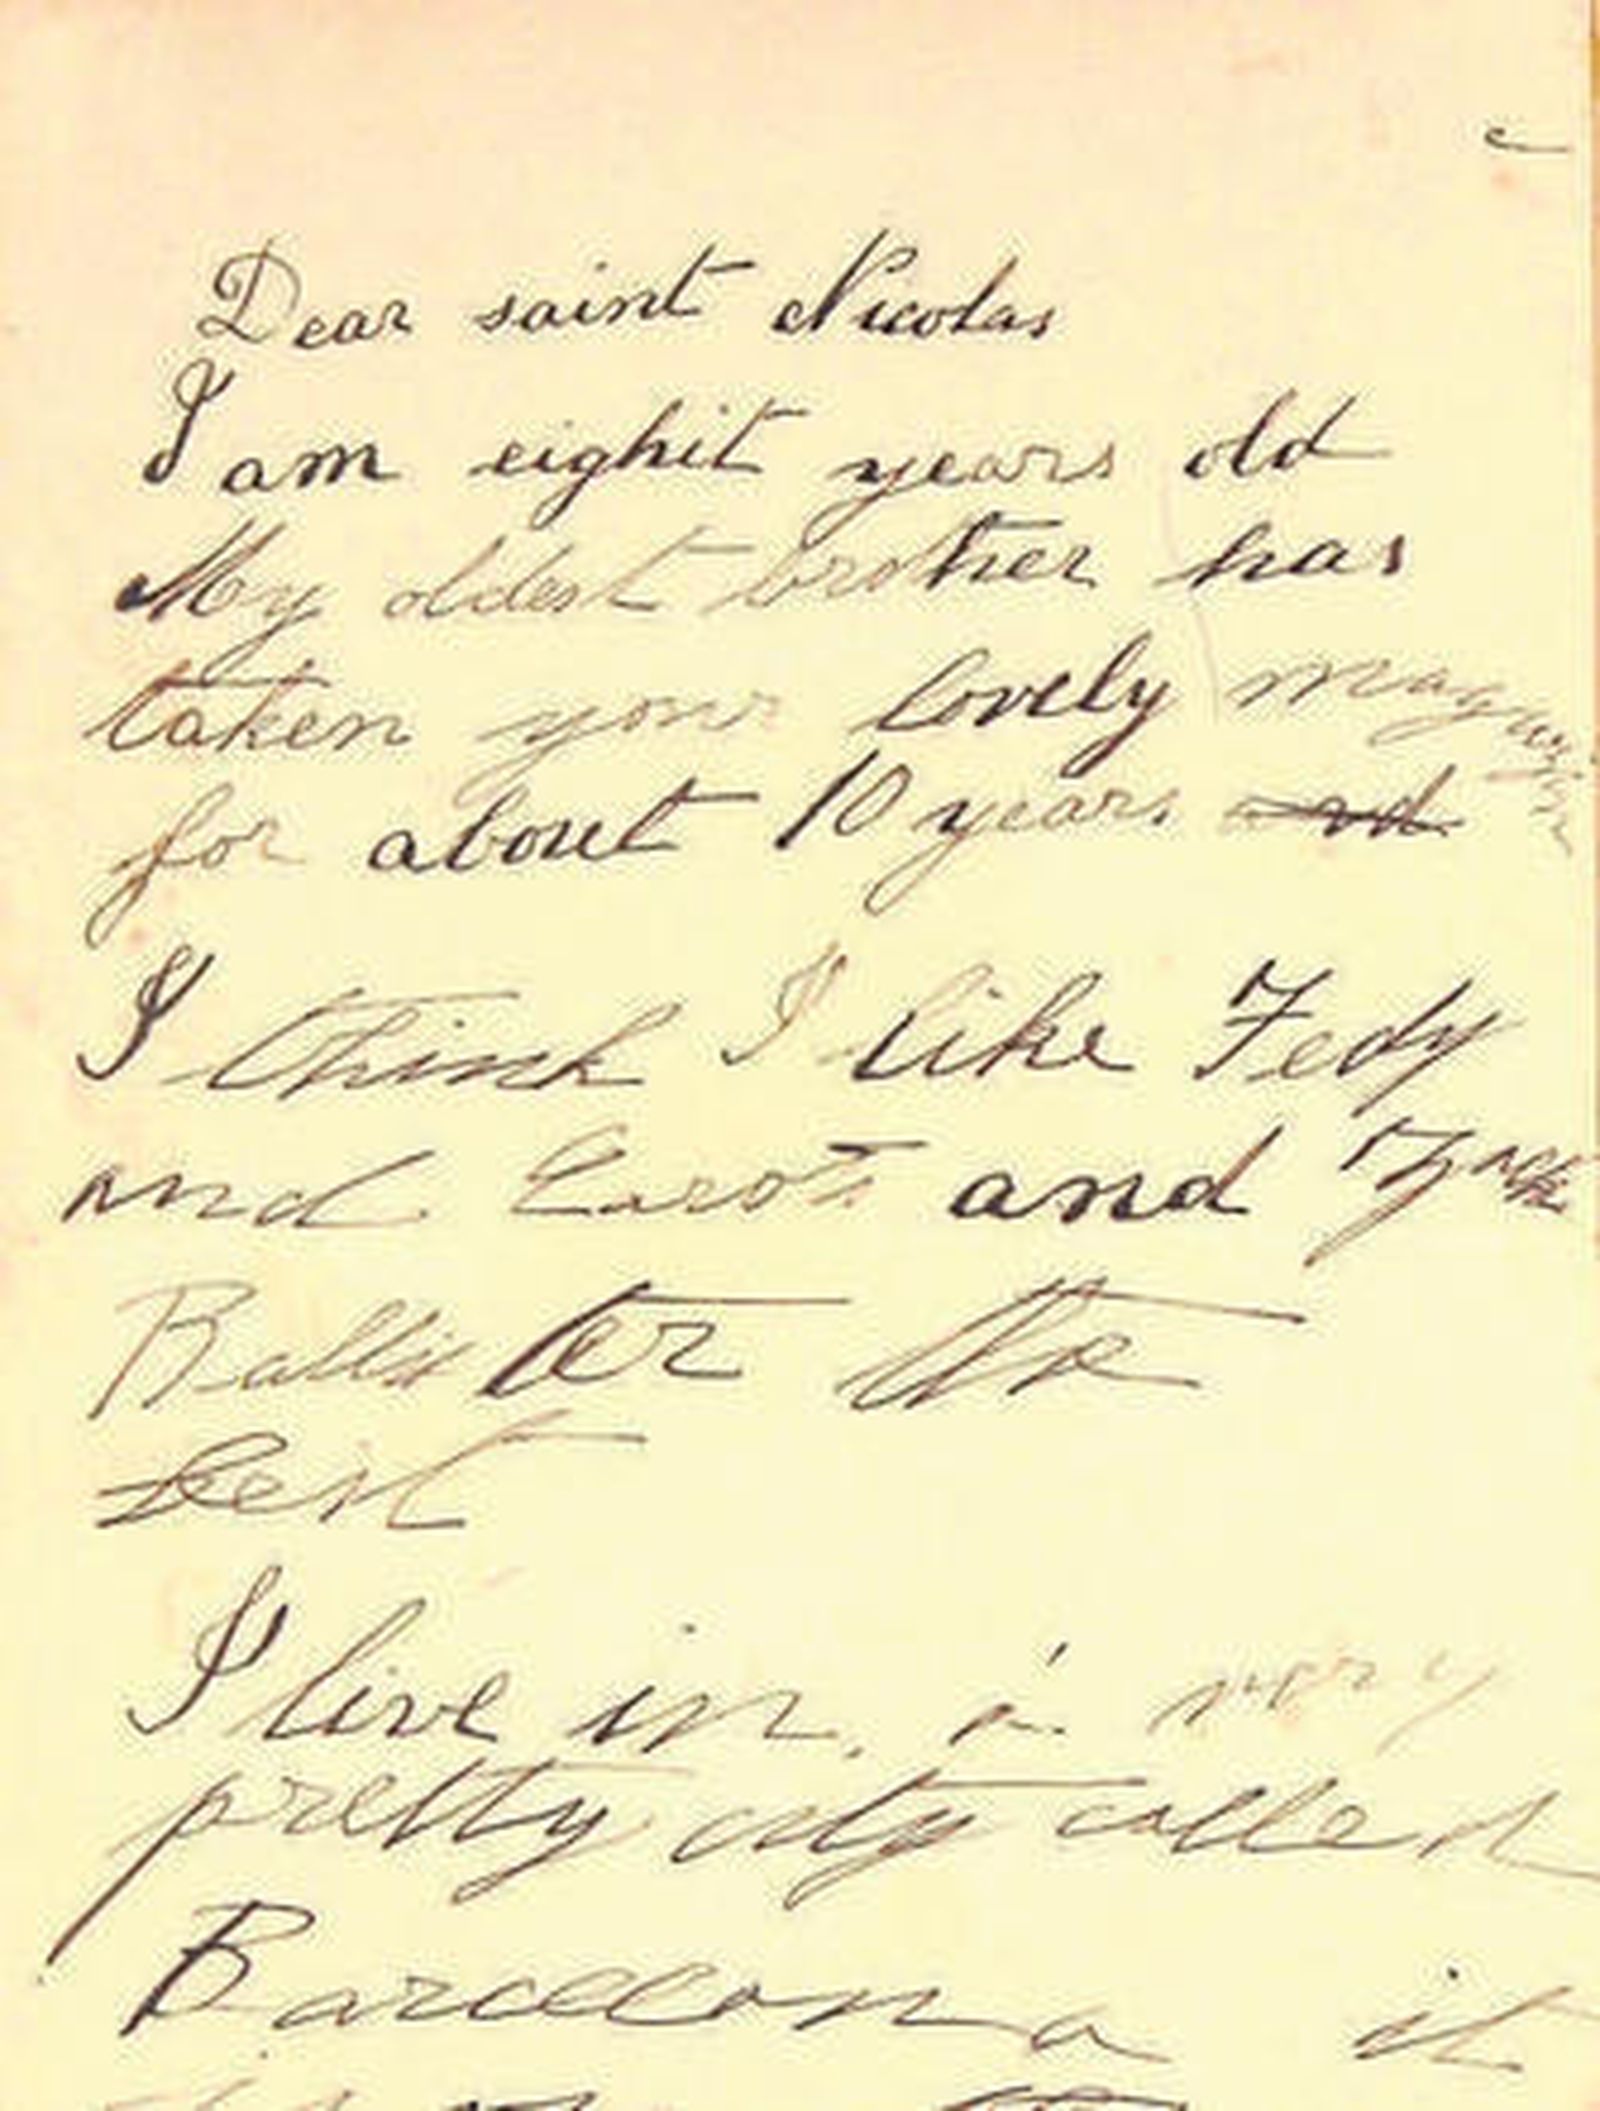 Dear saint Nicolas
I am eighit years old
My oldest brother has
taken your lovely
for about 10 years
I think I like Fedy
and and
Ballister the
best
I live in a very
pretty city called
Barcelona it